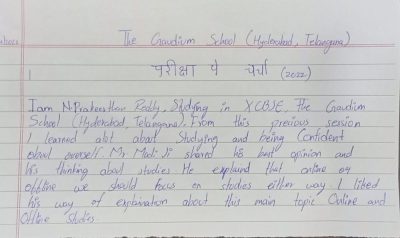 The Gaudium School (Hyderabad, Telangana)
परीक्षा पे चर्चा (2022)
I am N.Prateesthav Reddy, Studying in X CBSE, The Gaudium
School (Hyderabad, Telangana). From this previous session
I learned alot about Studying and being Confident
about overself. Mr. Modi Ji shared his best opinion and
his thinking about studies. He explaind that online or
offline we should focus on studies either way. I liked
his way of explaination about this main topic Online and
Offline Studies.